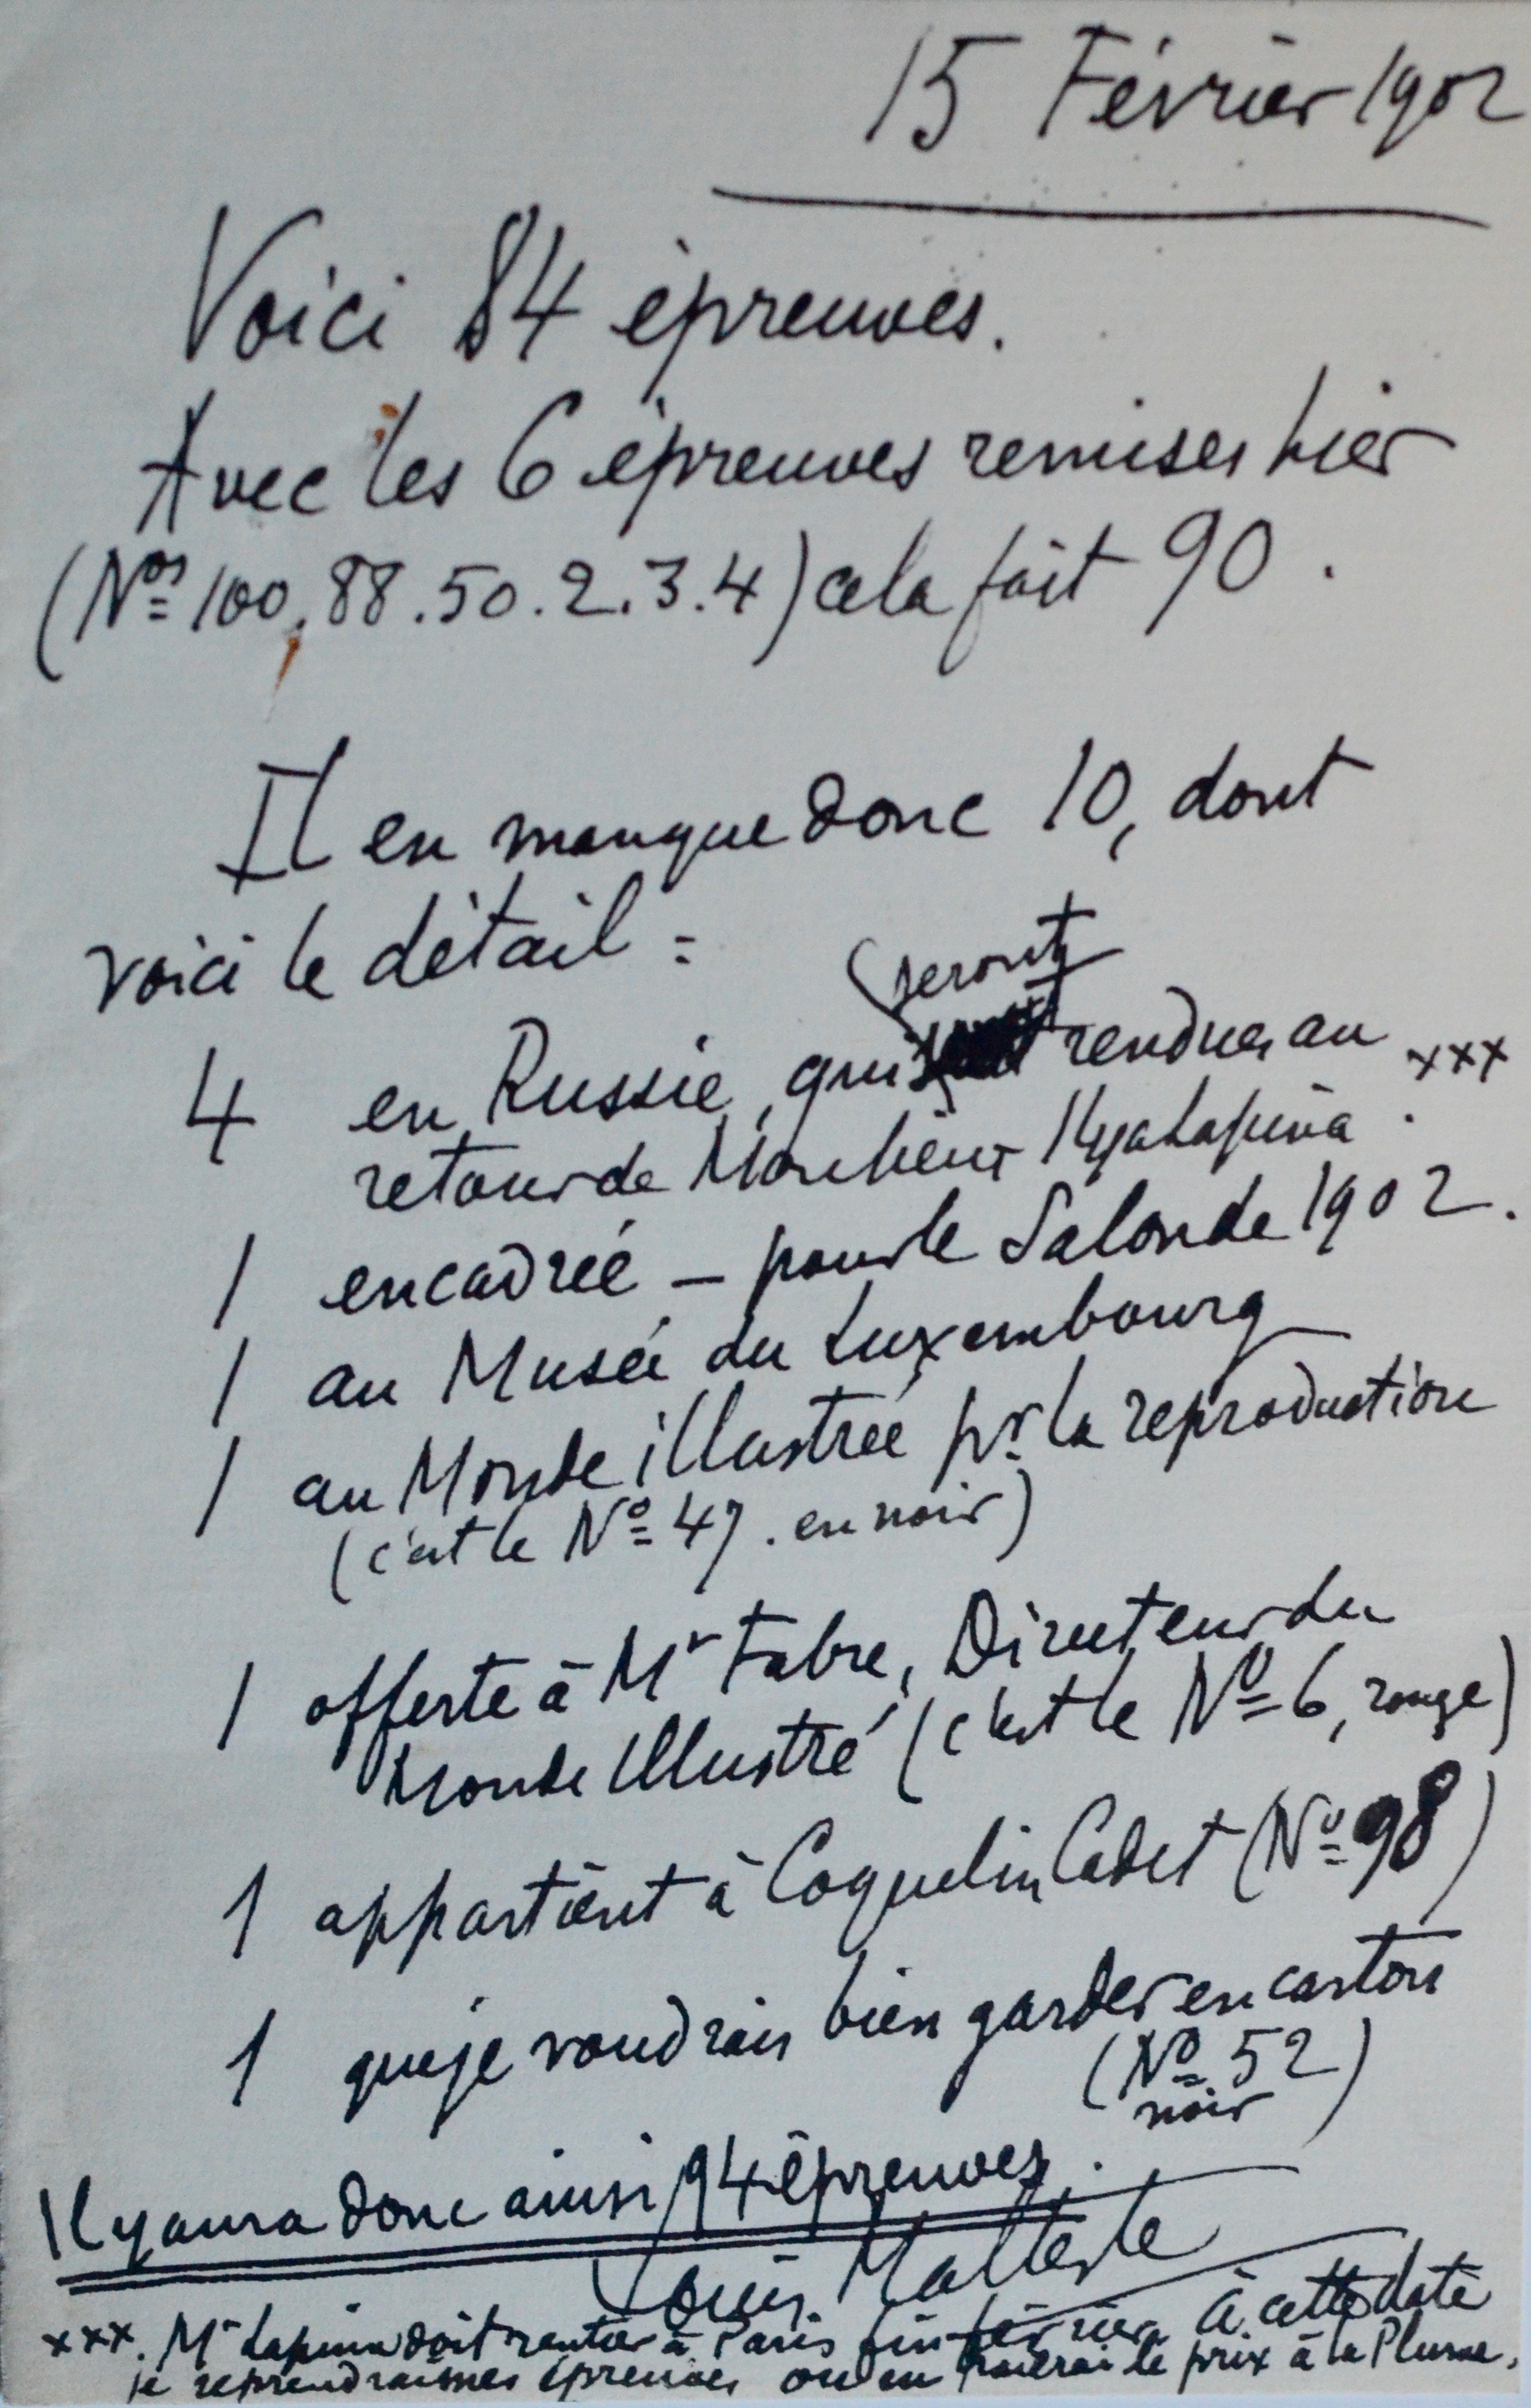 15 Février 1902
Voici 84 épreuves.
Avec les 6 épreuves remises hier
(Nos 100, 88.50.2.3.4) cela fait 90.
Il en manque donc 10, dont
voici le détail =
seront
4 en Russie, qui rendues au xxx
retour de Monsieur Ilya Lapina.
1 encadrée - pour le Salon de 1902.
1 au Musée du Luxembourg
1 au Monde illustrée pr la reproduction
(c'est le No 47. en noir)
1 offerte à Mr Fabre, Directeur du
Monde Illustré (c'est le No 6, rouge)
1 appartient à Coquelin Cadet (No 98)
1 que je voudrais bien garder en carton
(No 52)
noir
Il y aura donc ainsi 94 épreuves.
Louis Malteste
xxx. Mr Lapina doit rentrer à Paris fin février. À cette date
je reprendrai mes épreuves ou en paierai le prix à la Plume.